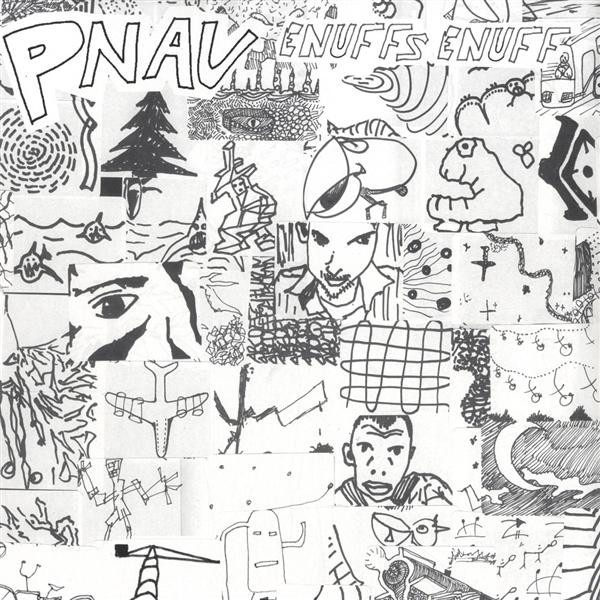 PNAV ENUFFS ENUFF